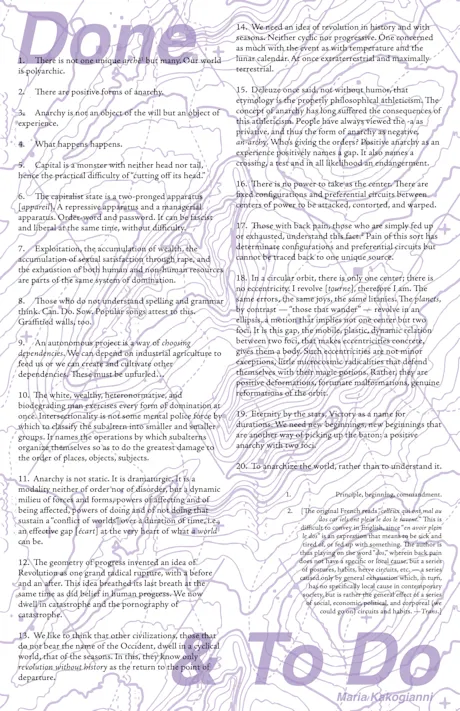 Done
1. There is not one unique arché¹ but many. Our world
is polyarchic.
2. There are positive forms of anarchy.
3. Anarchy is not an object of the will but an object of
experience.
4. What happens happens.
5. Capital is a monster with neither head nor tail,
hence the practical difficulty of “cutting off its head.”
6. The capitalist state is a two-pronged apparatus
[appareil]. A repressive apparatus and a managerial
apparatus. Order-word and password. It can be fascist
and liberal at the same time, without difficulty.
7. Exploitation, the accumulation of wealth, the
accumulation of sexual satisfaction through rape, and
the exhaustion of both human and non-human resources
are parts of the same system of domination.
8. Those who do not understand spelling and grammar
think. Can. Do. Sow. Popular songs attest to this.
Graffitied walls, too.
9. An autonomous project is a way of choosing
dependencies. We can depend on industrial agriculture to
feed us or we can create and cultivate other
dependencies. These must be unfurled…
10. The white, wealthy, heteronormative, and
biodegrading man exercises every form of domination at
once. Intersectionality is not some mental police force by
which to classify the subaltern into smaller and smaller
groups. It names the operations by which subalterns
organize themselves so as to do the greatest damage to
the order of places, objects, subjects.
11. Anarchy is not static. It is dramaturgic. It is a
modality neither of order nor of disorder, but a dynamic
milieu of forces and forms, powers of affecting and of
being affected, powers of doing and of not doing that
sustain a “conflict of worlds” over a duration of time, i.e.,
an effective gap [écart] at the very heart of what a world
can be.
12. The geometry of progress invented an idea of
Revolution as one grand radical rupture, with a before
and an after. This idea breathed its last breath at the
same time as did belief in human progress. We now
dwell in catastrophe and the pornography of
catastrophe.
13. We like to think that other civilizations, those that
do not bear the name of the Occident, dwell in a cyclical
world, that of the seasons. In this, they know only
revolution without history as the return to the point of
departure.
14. We need an idea of revolution in history and with
seasons. Neither cyclic nor progressive. One concerned
as much with the event as with temperature and the
lunar calendar. At once extraterrestrial and maximally
terrestrial.
15. Deleuze once said, not without humor, that
etymology is the properly philosophical athleticism. The
concept of anarchy has long suffered the consequences of
this athleticism. People have always viewed the -a as
privative, and thus the form of anarchy as negative,
an-archy. Who's giving the orders? Positive anarchy as an
experience positively names a gap. It also names a
crossing, a test and in all likelihood an endangerment.
16. There is no power to take as the center. There are
fixed configurations and preferential circuits between
centers of power to be attacked, contorted, and warped.
17. Those with back pain, those who are simply fed up
or exhausted, understand this fact.² Pain of this sort has
determinate configurations and preferential circuits but
cannot be traced back to one unique source.
18. In a circular orbit, there is only one center; there is
no eccentricity. I revolve [tourne], therefore I am. The
same errors, the same joys, the same litanies. The planets,
by contrast — “those that wander” — revolve in an
ellipsis, a motion that implies not one center but two
foci. It is this gap, the mobile, plastic, dynamic relation
between two foci, that makes eccentricities concrete,
gives them a body. Such eccentricities are not minor
exceptions, little microcosmic radicalities that defend
themselves with their magic potions. Rather, they are
positive deformations, fortunate malformations, genuine
reformations of the orbit.
19. Eternity by the stars. Victory as a name for
durations. We need new beginnings, new beginnings that
are another way of picking up the baton: a positive
anarchy with two foci.
20. To anarchize the world, rather than to understand it.
1. Principle, beginning, commandment.
2. [The original French reads
difficult to convey in English, since “en avoir plein
le dos” is an expression that means to be sick and
tired of, or fed up with something. The author is
thus playing on the word “dos,” wherein back pain
does not have a specific or local cause, but a series
of postures, habits, nerve circuits, etc. — a series
caused only by general exhaustion which, in turn,
has no specifically local cause in contemporary
society, but is rather the general effect of a series
of social, economic, political, and corporeal (we
could go on) circuits and habits. —Trans.]
& To Do
Maria Kakogianni